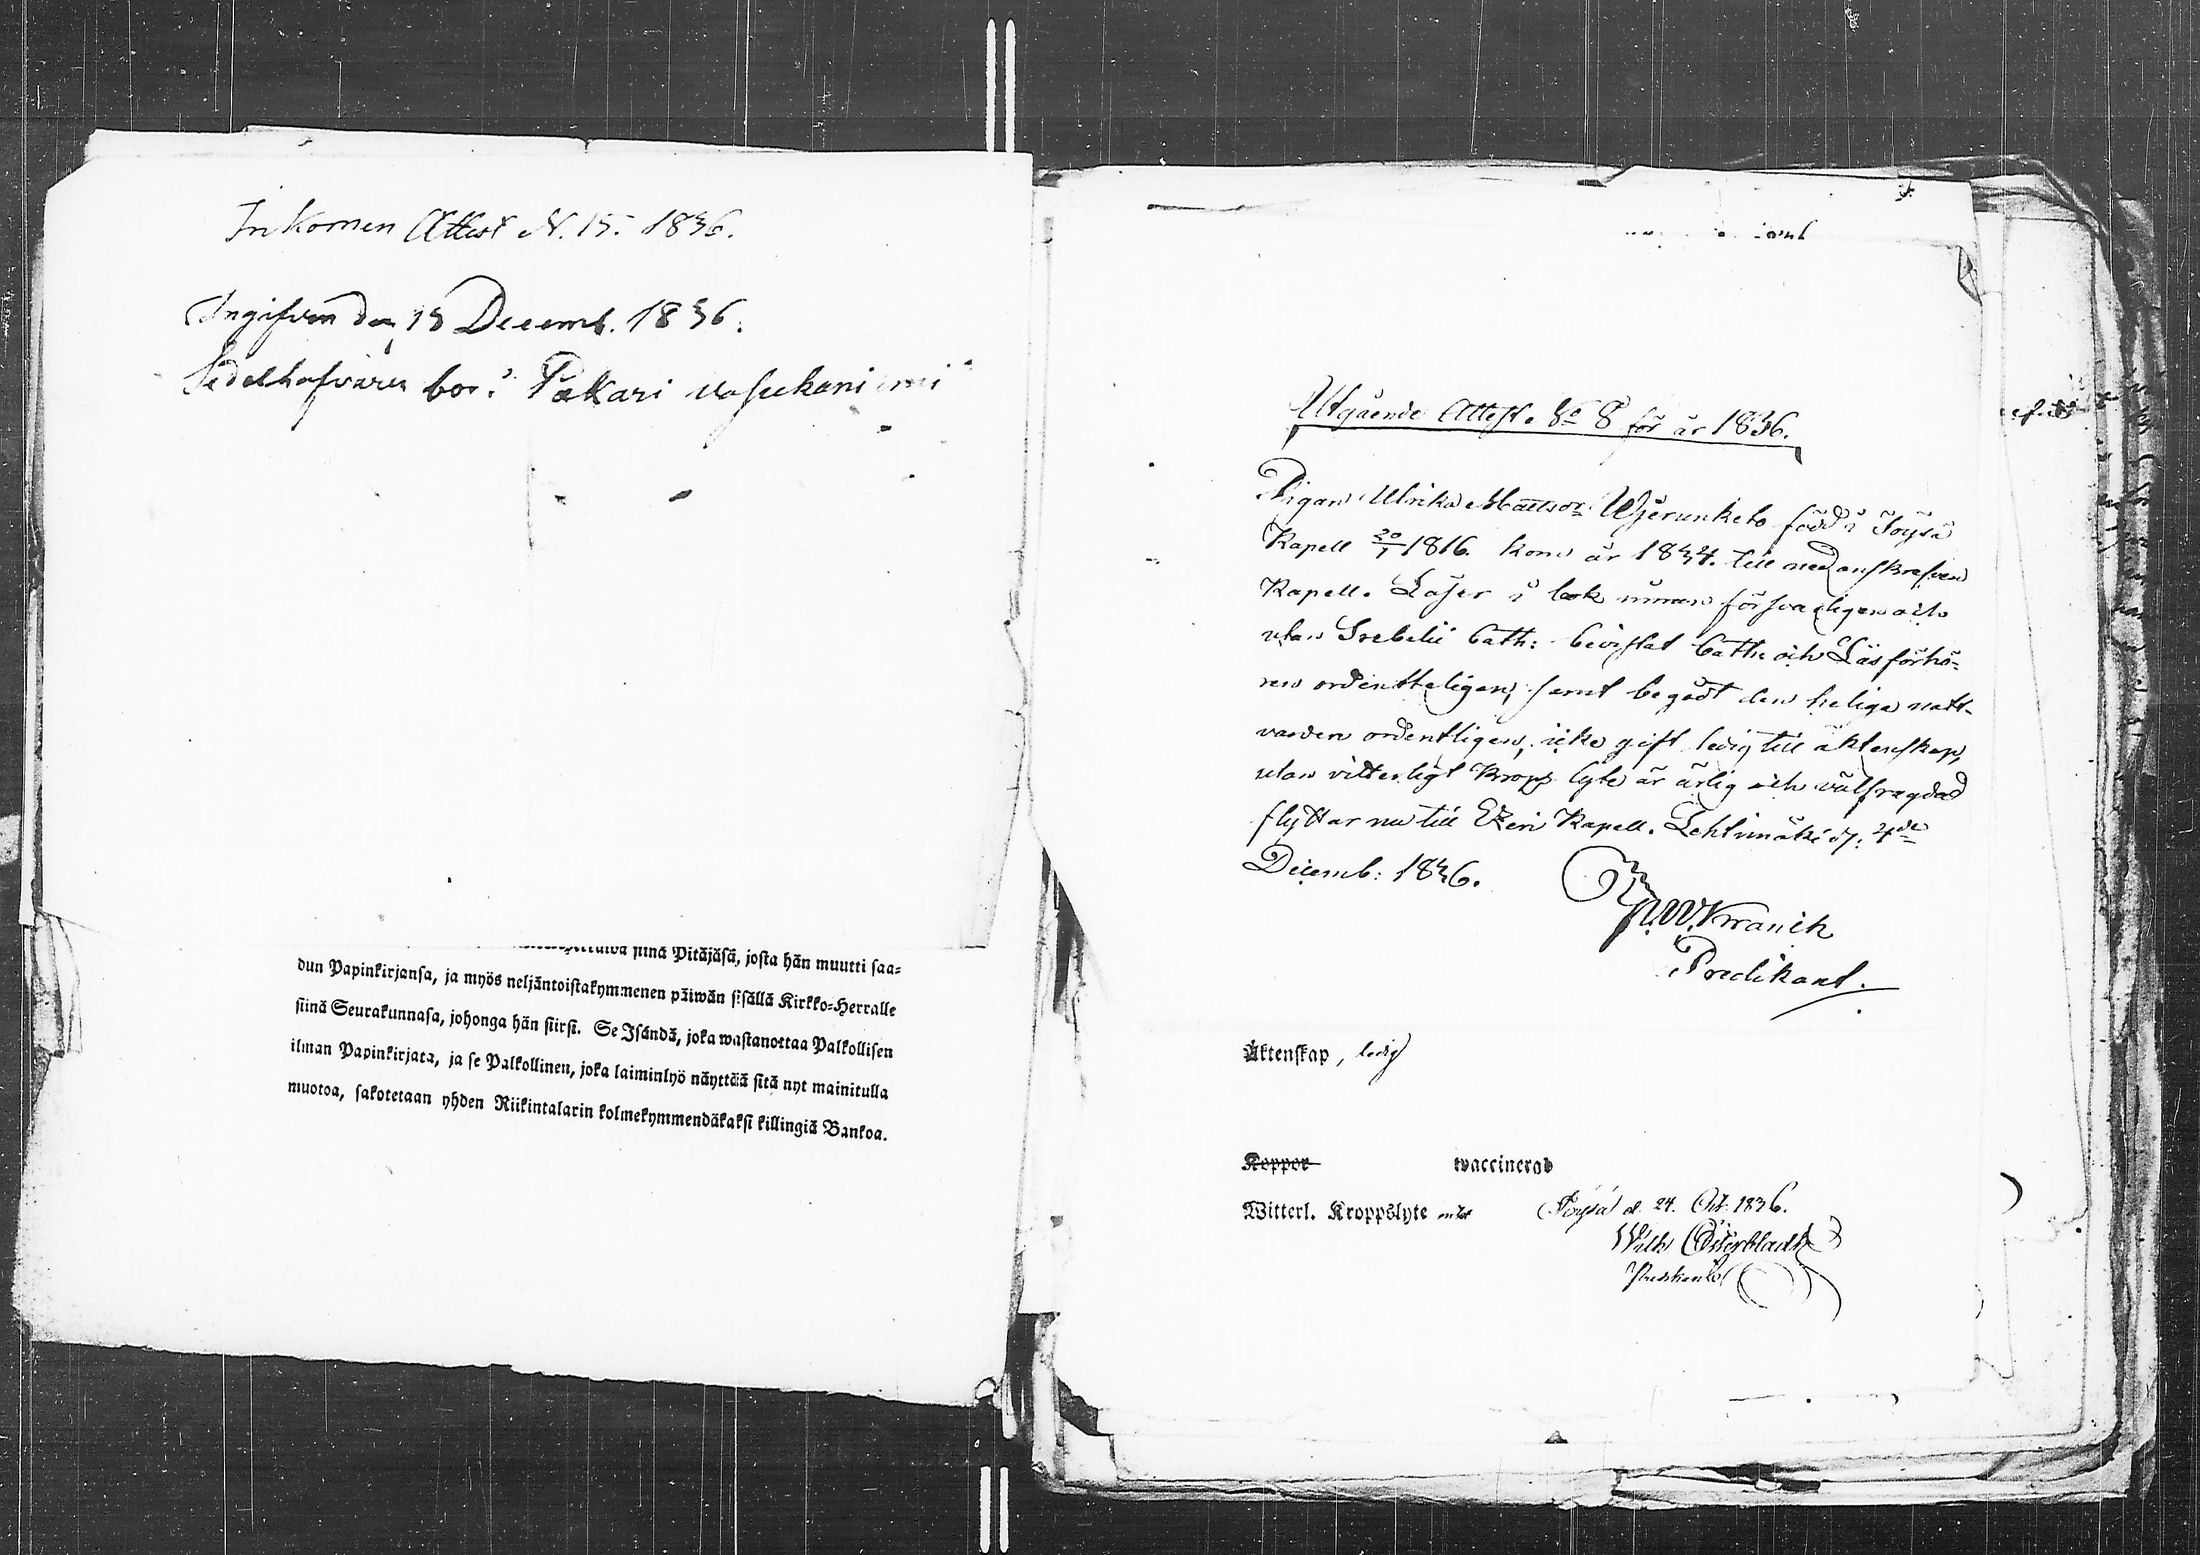 Inkomen Attest N. 15. 1836.
Ingifven den 15 Decemb. 1836.
Sedelhafvaren bor i Pakari
siinä Pitäjäsä, josta hän muutti saa=
dun Papinkirjansa, ja myös neljäntoistakymmenen päiwän sisällä Kirkko=Herralle
siinä Seurakunnasa, johonga hän siirsi. Se Isändä, joka wastanottaa Palkollisen
ilman Papinkirjata, ja se Palkollinen, joka laiminlyö näyttää sitä nyt mainitulla
muotoa, sakotetaan yhden Riikintalarin kolmekymmendäkaksi killingiä Bankoa.
Utgående Attest. No 8 för år 1836.
Pigan Ulrika Mattsdr född i Töysä
Kapell 20/1 1816. kom år 1834. till nedanskrefven
Kapell. Läser i bok innan försvarligen och
utan Svebelii Cath: bevistat Cath: och Läsförhö=
ren ordentteligen, samt begådt den heliga natt-
varden ordentligen, icke gift ledig till äktenskap,
utan vitterligt kropps lyte är ärlig och välfrägdad
flyttar nu till Etzeri Kapell. Lehtimäki d. 4de
Decemb: 1836.
Kranck
Predikant.
Äktenskap, ledig
Koppor waccinerad
Witterl. Kroppslyte intet Töysä d. 24. Oct. 1836.
Wilh Österbladh
Predikant